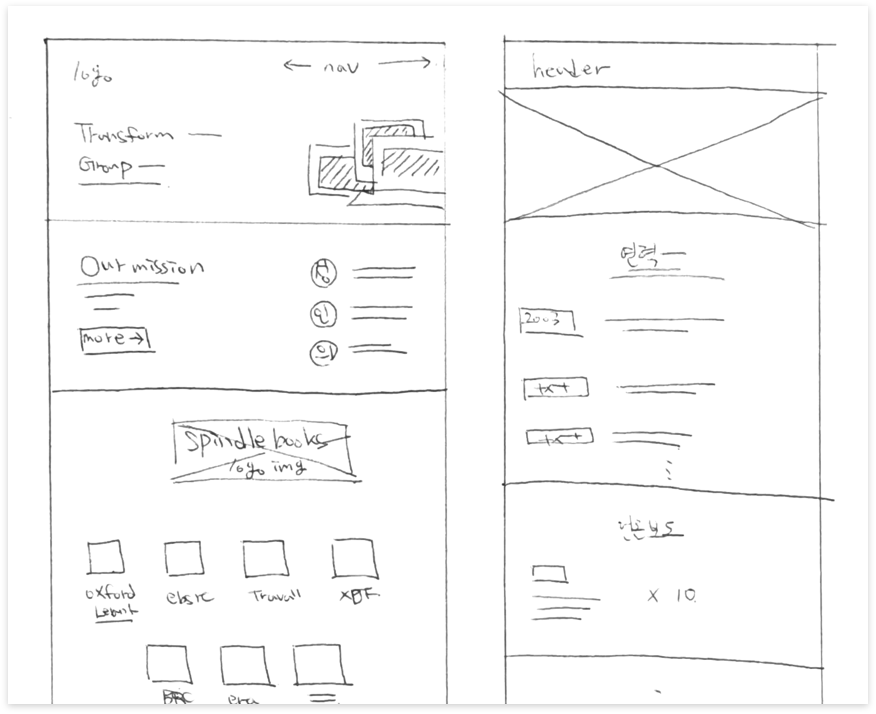 logo
← nav →
Transform
Group
Our mission
more →
인
의
Spindle books
logo img
oxford
ebsrc
Travail
header
연혁
2003
txt
txt
언론보도
x 10